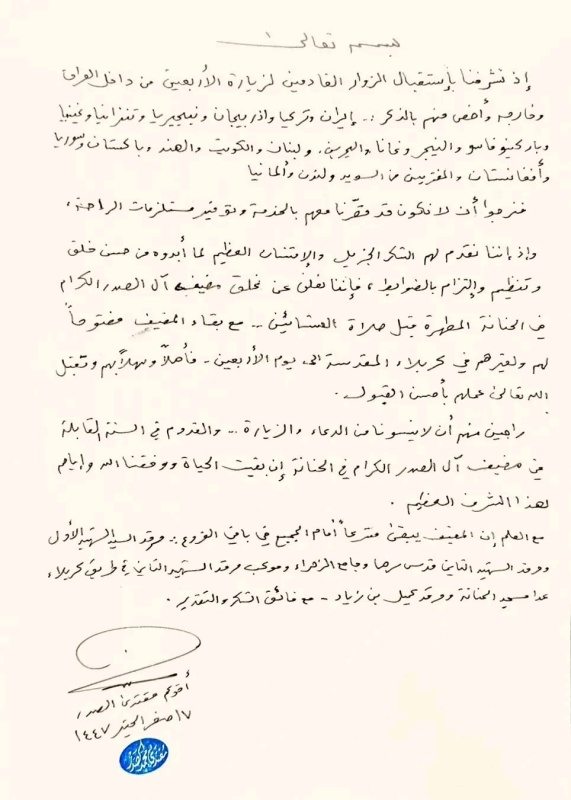 بسمه تعالى
إذ تشرفنا بإستقبال الزوار القادمين لزيارة الأربعين من داخل العراق
وخارجه وأخص منهم بالذكر :. إيران وتركيا واذربيجان ونيجيريا وتنزانيا وغينيا
وباركينوفاسو والنيجر وغانا والبحرين. ولبنان والكويت والهند وباكستان وسوريا
وأفغانستان والمغتربين من السويد ولندن وألمانيا
فنرجوا أن لا نكون قد قصّرنا معهم بالخدمة وتوفير مستلزمات الراحة،
وإذ إننا نقدم لهم الشكر الجزيل والإمتنان العظيم لما أبدوه من حسن خلق
وتنظيم وإلتزام بالضوابط، فإننا نعلن عن غلق مضيف آل الصدر الكرام
في الحنانة المطهرة قبل صلاة العشائين .. مع بقاء المضيف مفتوحاً
لهم ولغيرهم في كربلاء المقدسة الى يوم الأربعين - فأهلاً وسهلاً بهم وتقبل
الله تعالى عملهم بأحسن القبول .
راجين منهم أن لا ينسونا من الدعاء والزيارة .. والقدوم في السنة المقابلة
في مضيف آل الصدر الكرام في الحنانة إن بقيت الحياة ووفقنا الله وإياهم
لهذا الشرف العظيم .
مع العلم إن المضيف يبقى مشرعاً أمام الجميع في باقي الفروع :. مرقد السيد الشهيد الأول
ومرقد الشهيد الثاني قدس سرهما وجامع الزهراء وموكب مرقد الشهيد الثاني في طريق كربلاء
عدا مسجد الحنانة ومرقد كميل بن زياد - مع فائق الشكر والتقدير .
أخوكم مقتدى الصدر
١٧ صفر الخير ١٤٤٧